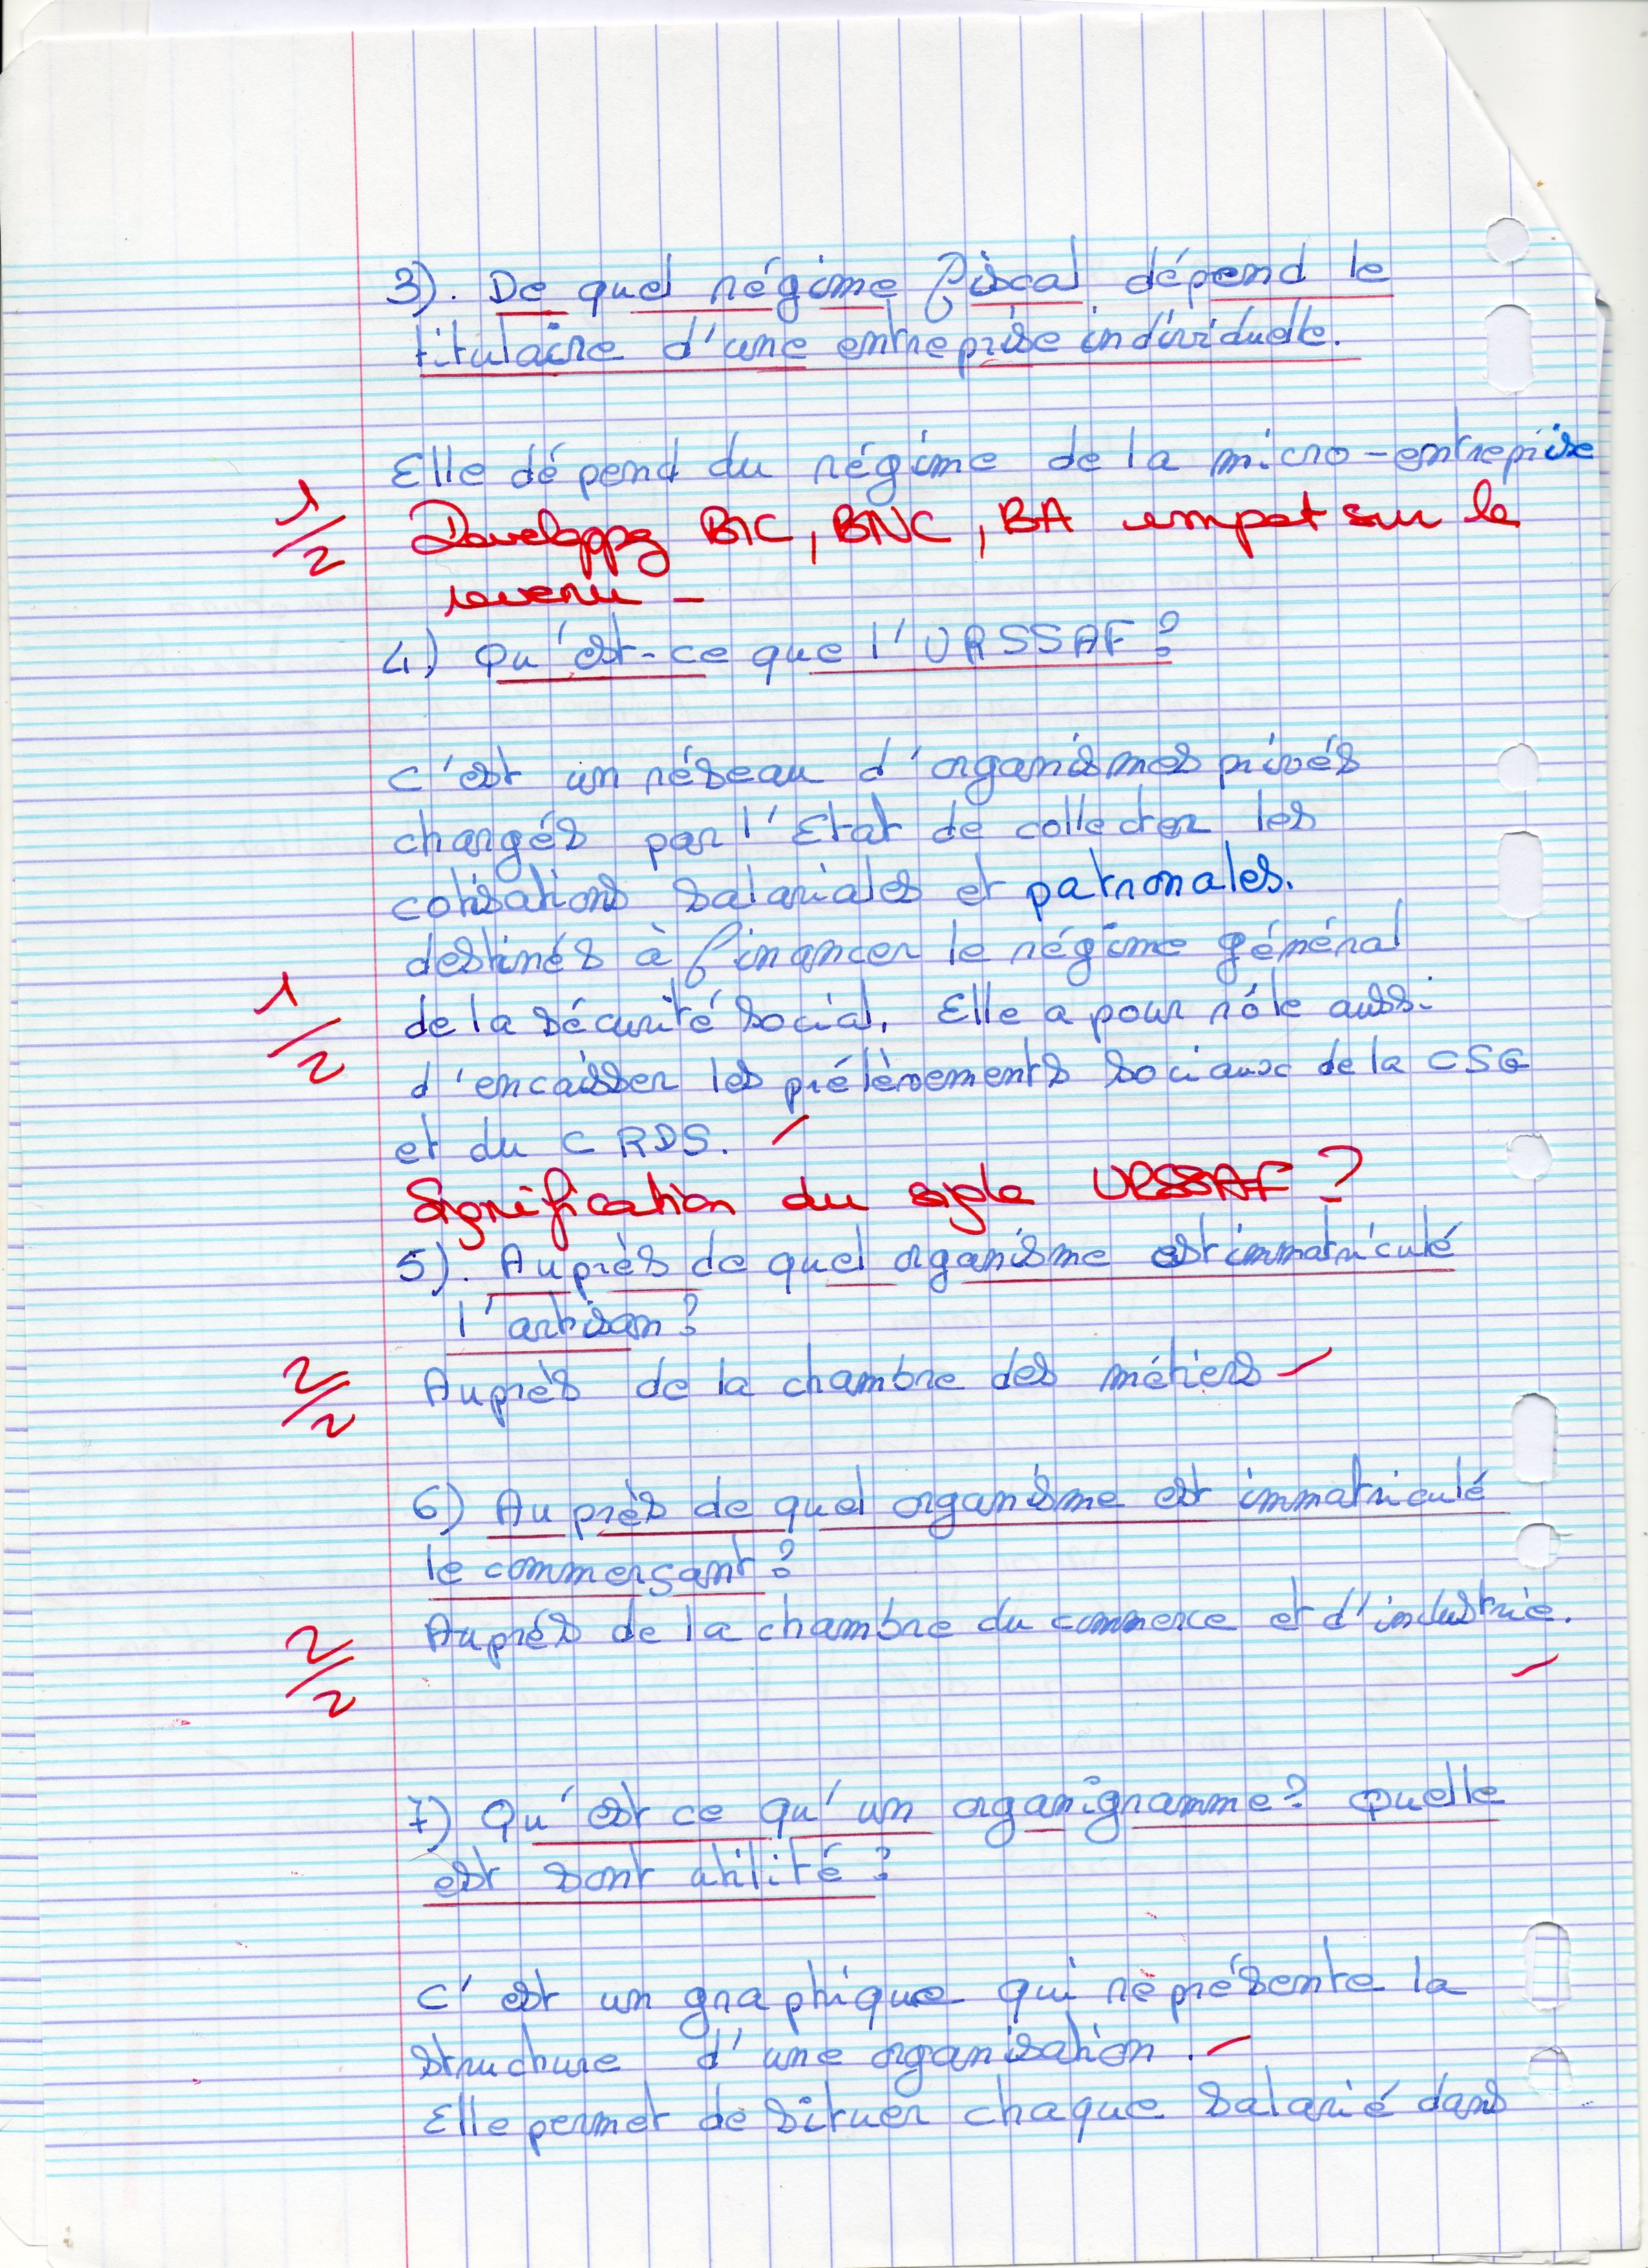 3). De quel régime fiscal dépend le
titulaire d'une entreprise individuelle.
Elle dépend du régime de la micro-entreprise
1/2
Developpez BIC, BNC, BA impot sur le
revenu -
4) Qu'est-ce que l'URSSAF ?
C'est un réseau d'organismes privés
chargés par l'Etat de collecter les
cotisations salariales et patronales.
destinés à financer le régime général
1/2
de la sécurité social. Elle a pour rôle aussi
d'encaisser les prélèvements sociaux de la CSG
et du CRDS.
Signification du sigle URSSAF ?
5). Auprès de quel organisme est immatriculé
l'artisan ?
2/2
Auprès de la chambre des métiers
6) Auprès de quel organisme est immatriculé
le commerçant ?
2/2
Auprés de la chambre du commerce et d'industrie.
7) Qu'est ce qu'un organigramme ? Quelle
est sont utilité ?
C'est un graphique qui représente la
structure d'une organisation.
Elle permet de situer chaque salarié dans